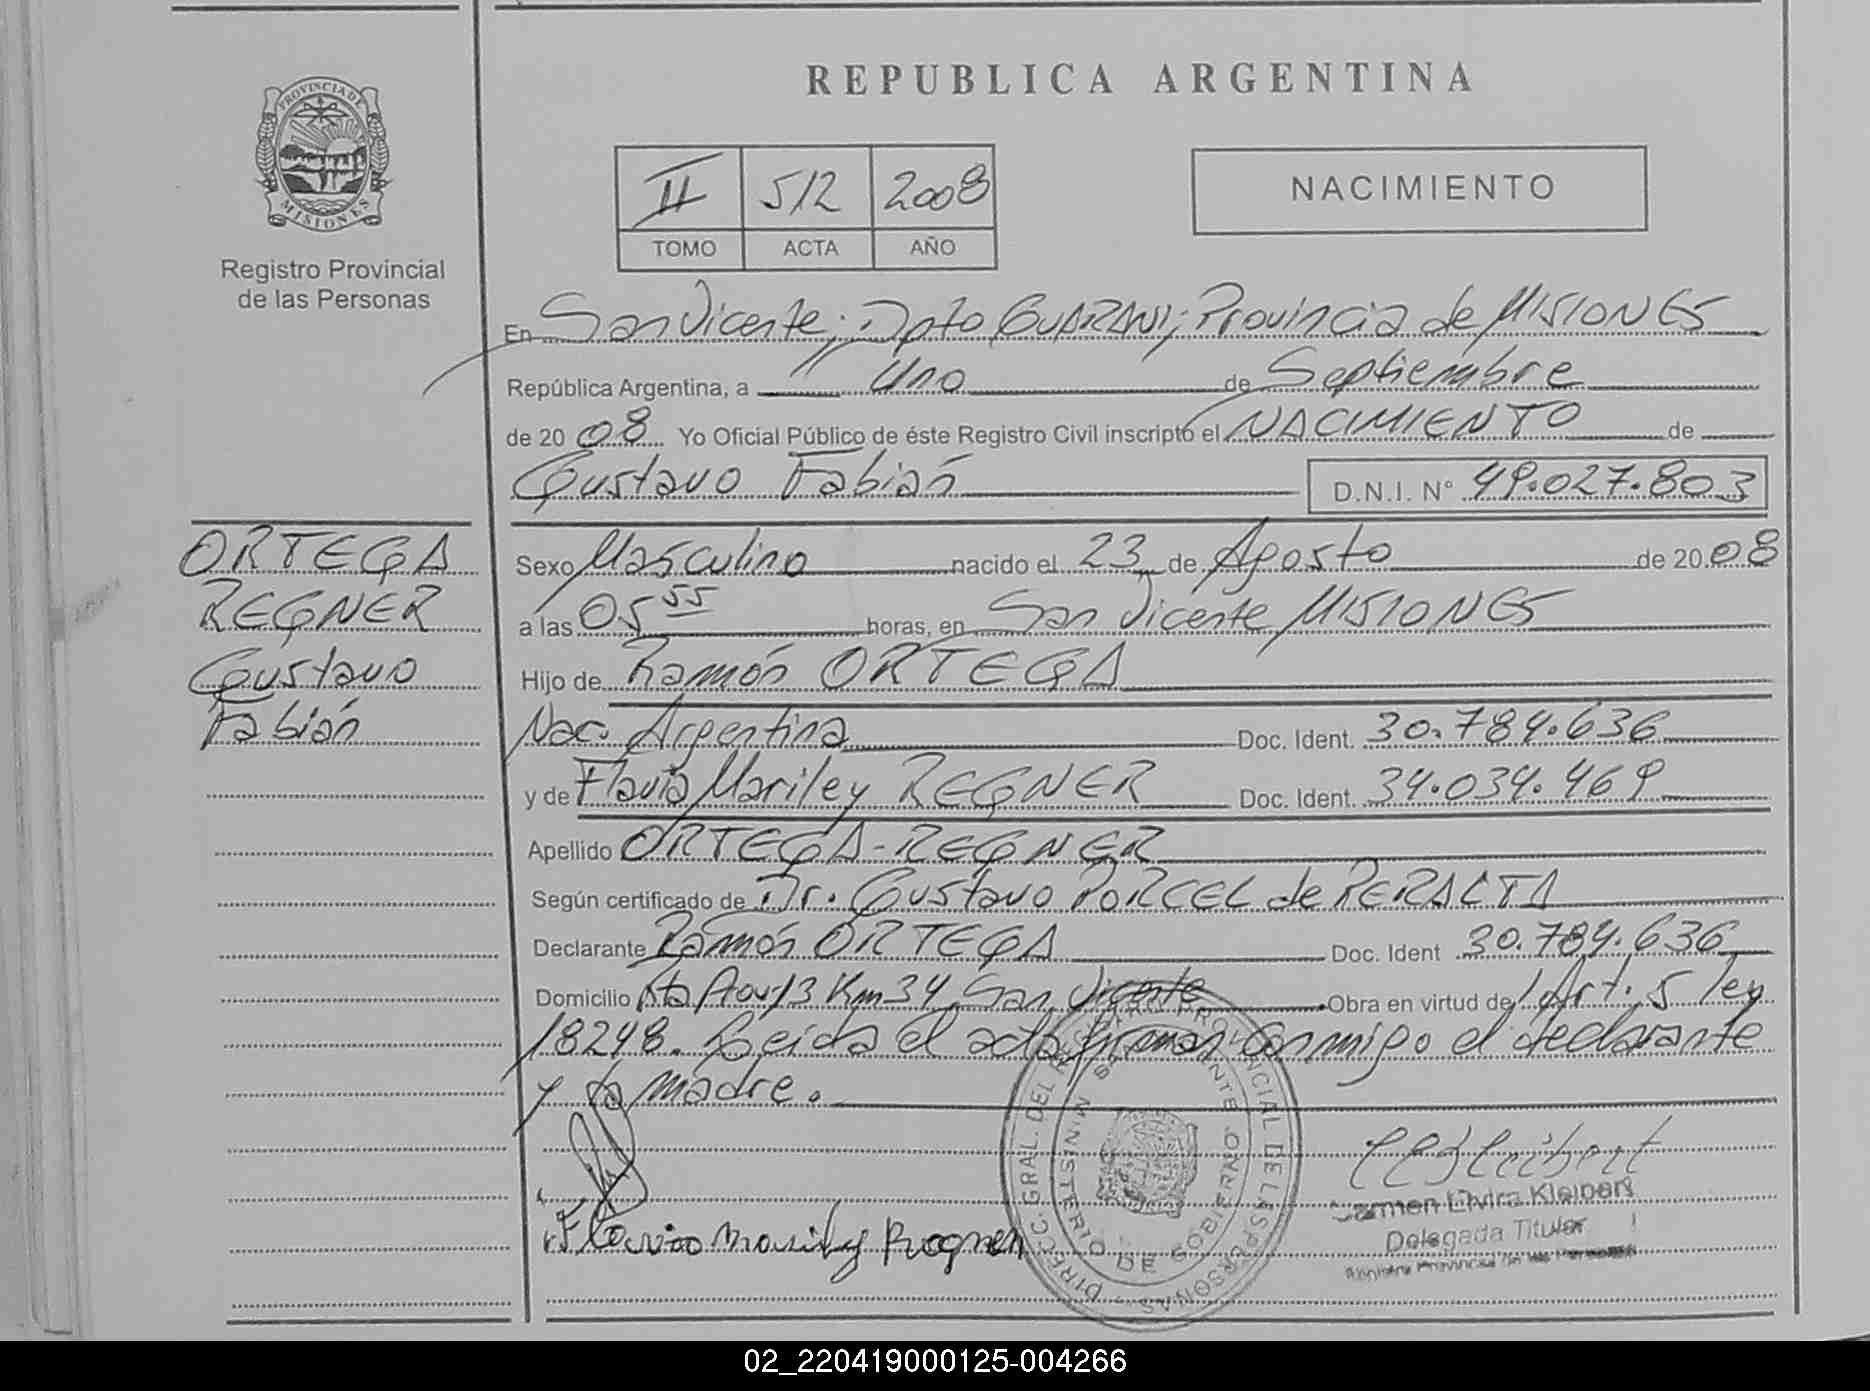 REPUBLICA ARGENTINA
PROVINCIA DE
MISIONES
Registro Provincial
de las Personas
II 512 2008
TOMO ACTA AÑO
NACIMIENTO
En San Vicente; Dpto GUARANI; Provincia de MISIONES
República Argentina, a Uno de Septiembre
de 20 08 Yo Oficial Público de éste Registro Civil inscripto el NACIMIENTO de
Gustavo Fabián D.N.I. N° 49.027.803
ORTEGA
REGNER
Gustavo
Fabián
Sexo Masculino nacido el 23 de Agosto de 20 08
a las 05 55 horas, en San Vicente MISIONES
Hijo de Ramón ORTEGA
Nac. Argentina Doc. Ident. 30.784.636
y de Flavia Mariley REGNER Doc. Ident. 34.034.469
Apellido ORTEGA-REGNER
Según certificado de Dr. Gustavo PORCEL de PERALTA
Declarante Ramón ORTEGA Doc. Ident 30.784.636
Domicilio Rta Prov 13 Km 34 San Vicente Obra en virtud de Art. 5 ley
18248. Leida el acta firman conmigo el declarante
y la madre.
DIRECC. GRAL. DEL REGISTRO PROVINCIAL DE LAS PERSONAS
MINISTERIO DE GOBIERNO
SAN VICENTE
Carmen Elvira Kleibert
Delegada Titular
Registro Provincial de las Personas
Flavia Mariley Regner
02_220419000125-004266